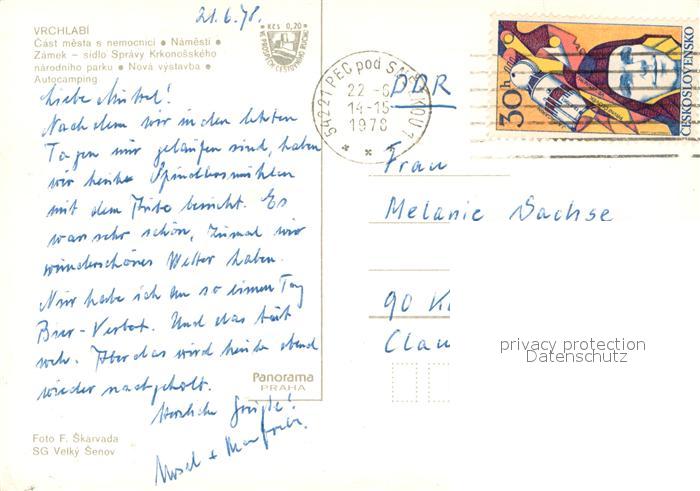 21.6.78.
VRCHLABÍ
Část města s nemocnicí ● Náměstí ●
Zámek – sídlo Správy Krkonošského
národního parku ● Nová výstavba ●
Autocamping
Kčs 0,20
VE PROSPĚCH CESTOVNÍHO RUCHU
54221 PEC pod SNĚŽKOU 1
22.-6
14-15
1978
30h
ČESKOSLOVENSKO
DDR
Liebe
Nachdem wir in den letzten
Tagen nur gelaufen sind, haben
wir heute Spindlersmühlen
mit dem Auto besucht. Es
war sehr schön, zumal wir
wunderschönes Wetter haben.
Nur habe ich an so einem Tag
Bier-Verbot. Und das tut
weh. Aber das wird heute abend
wieder nachgeholt.
Herzliche Grüße!
+ Manfred
Frau
Melanie Sachse
90 K
Clau
privacy protection
Datenschutz
Panorama
PRAHA
Foto F. Škarvada
SG Velký Šenov